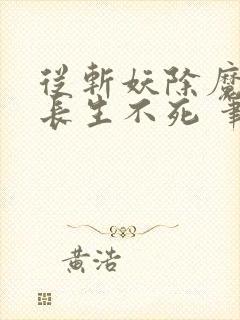 從斬妖除魔
長生不死 筆
黃浩